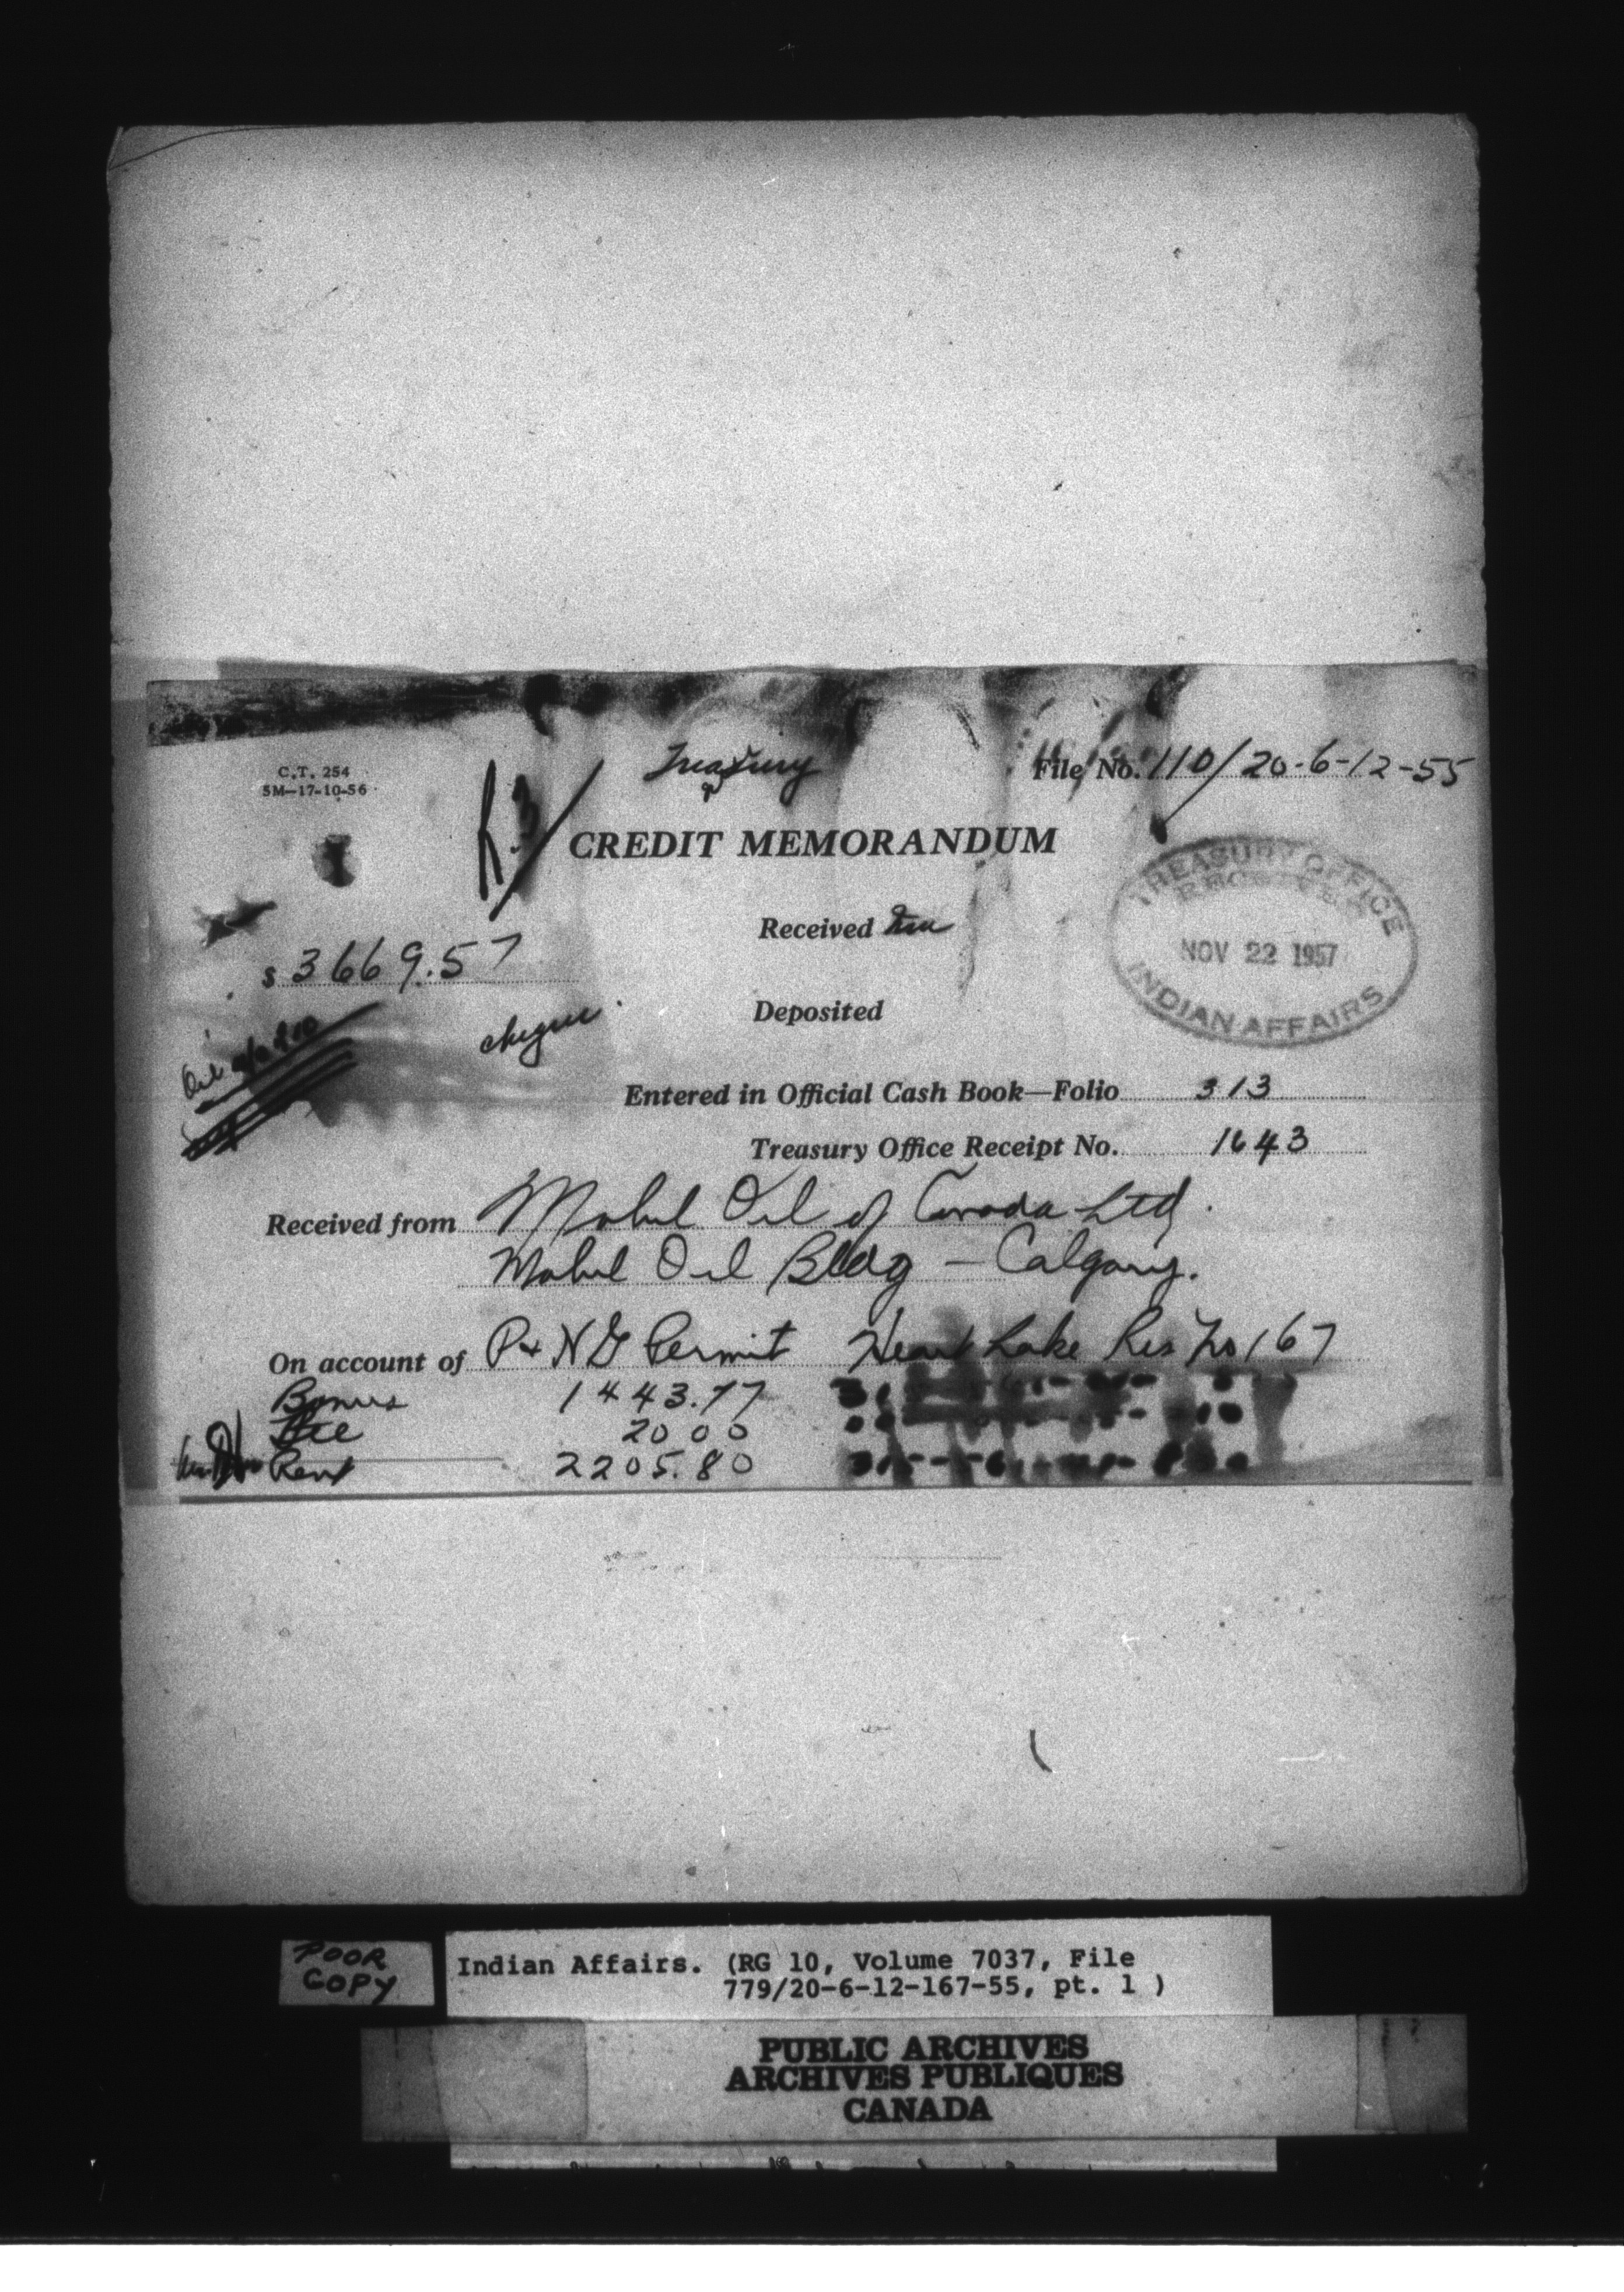 C.T. 254
5M—17-10-56
Treasury
File No. 110/20-6-12-55
R.3
CREDIT MEMORANDUM
TREASURY OFFICE
RECEIVED
NOV 22 1957
INDIAN AFFAIRS
Received
$ 3669.57
Deposited
cheque
Oil
Entered in Official Cash Book—Folio 313
Treasury Office Receipt No. 1643
Received from Mobil Oil of Canada Ltd.
Mobil Oil Bldg – Calgary.
On account of P & NG Permit Heart Lake Res No 167
Bonus 1443.77
Fee 20 00
Rent 2205.80
POOR
COPY
Indian Affairs. (RG 10, Volume 7037, File
779/20-6-12-167-55, pt. 1 )
PUBLIC ARCHIVES
ARCHIVES PUBLIQUES
CANADA